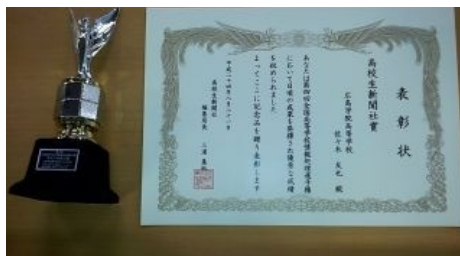 表彰状
高校生新聞社賞
広島学院高等学校
佐々木 友也 殿
あなたは第四回全国高等学校情報処理選手権
において日頃の成果を発揮され優秀な成績
を収められました
よってここに記念品を贈り表彰します
平成二十四年八月二十一日
高校生新聞社
編集局長 三浦